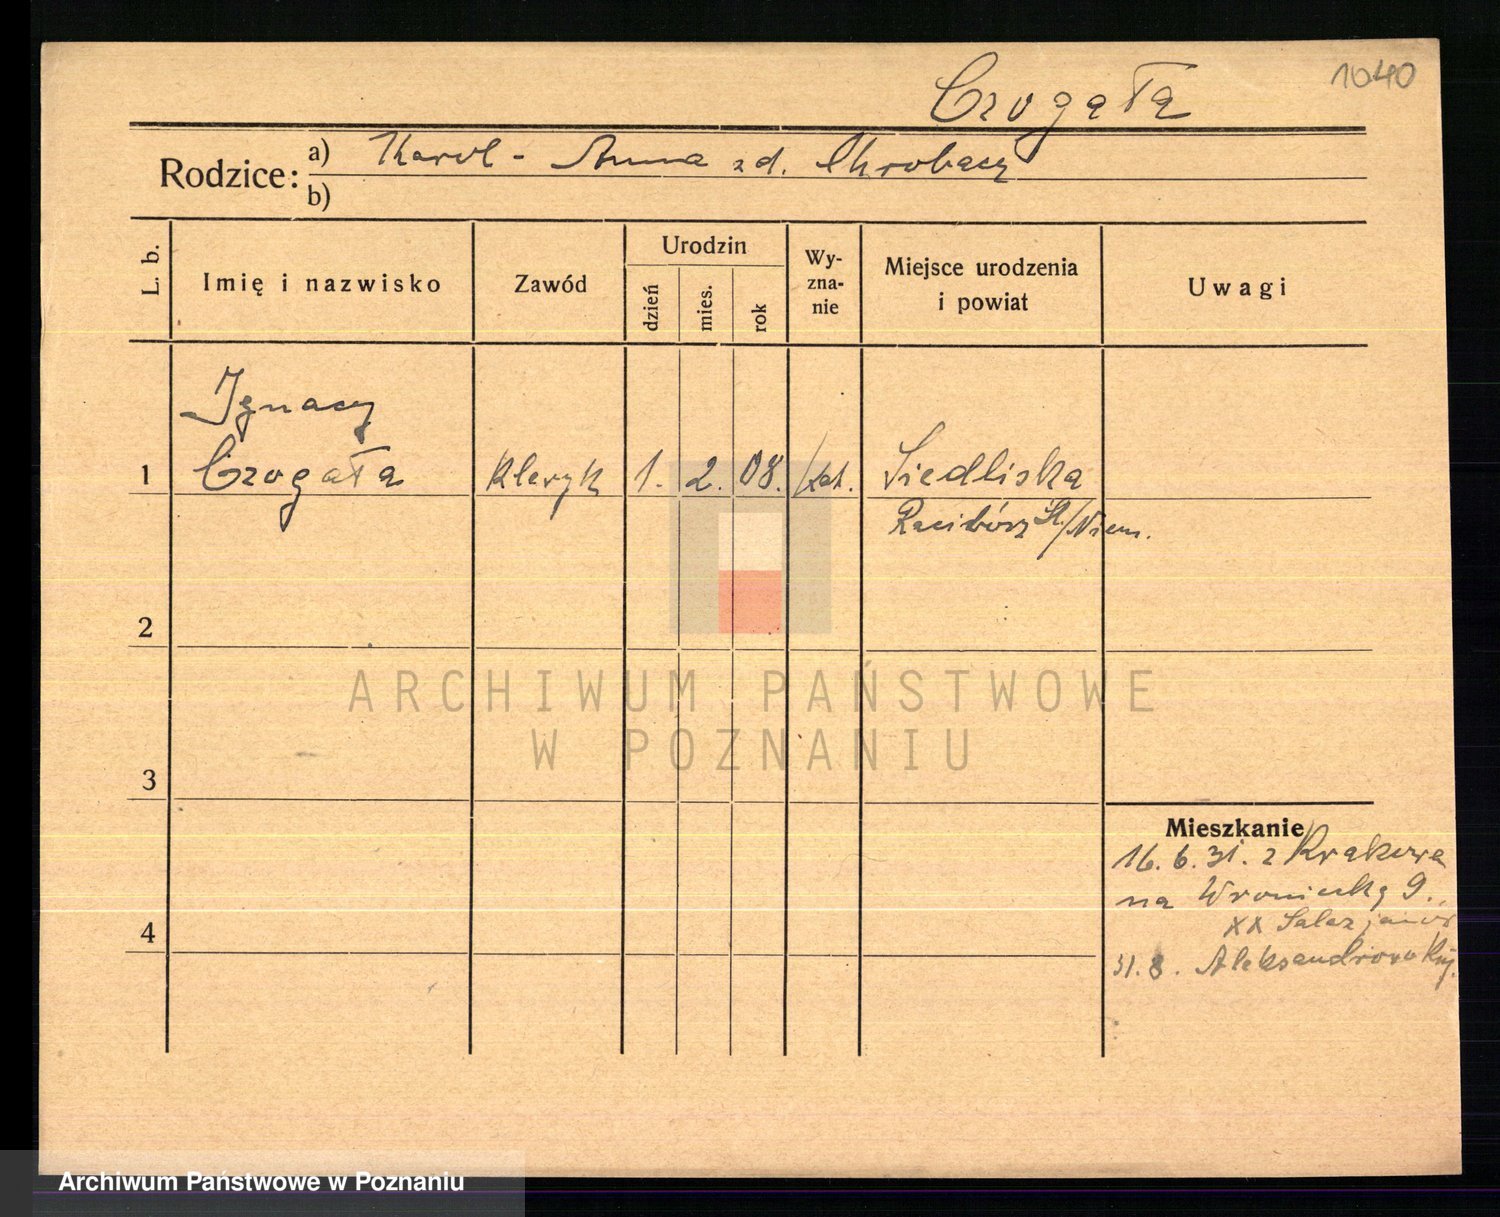 1040
Czogała
Rodzice:
a) Karol - Anna zd. Chrobacz
b)
L. b.
Imię i nazwisko
Zawód
Urodzin
dzień
mies.
rok
Wy-
zna-
nie
Miejsce urodzenia
i powiat
Uwagi
Ignacy
1 Czogała Kleryk 1. 2. 08. kat. Siedliska
Racibórz Śl./Niem.
2
ARCHIWUM PAŃSTWOWE
W POZNANIU
3
Mieszkanie
16. 6. 31. z Krakowa
na Wroniecką 9.
XX Salezjanów
4
31. 8. Aleksandrowo Kuj.
Archiwum Państwowe w Poznaniu